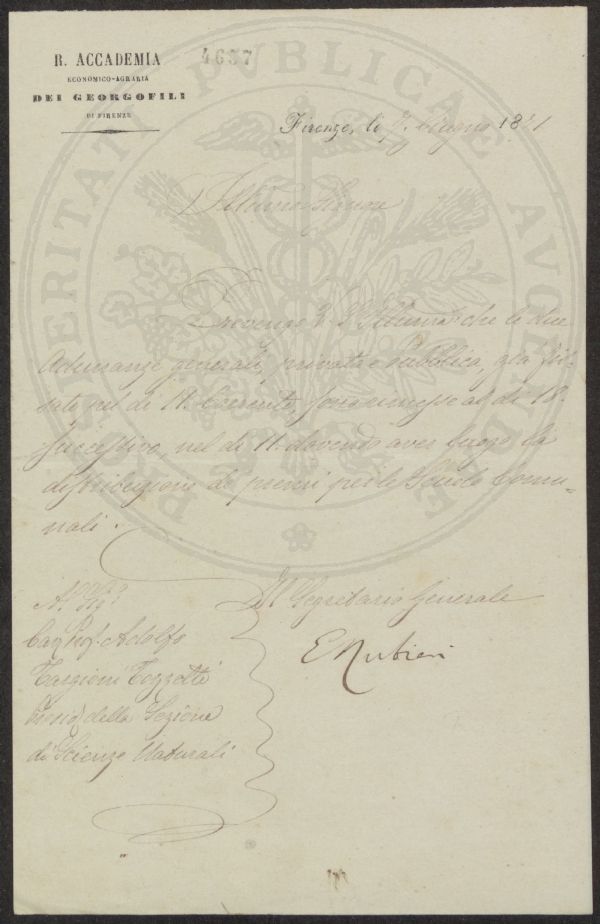 R. ACCADEMIA
ECONOMICO-AGRARIA
DEI GEORGOFILI
DI FIRENZE
4637
Firenze, li Giugno 18
Illmo Signore
Prevengo la che le due
Adunanze generali, privata e pubblica, già fis-
sate pel di 11. Corrente, son rimesse al di 18.
successivo, nel di 11. dovendo aver luogo la
distribuzione de' premi per le Scuole Comu-
nali.
Il Segretario Generale
E Rubieri
Al Sig.
Cav. Prof. Adolfo
Targioni Tozzetti
della Sezione
di Scienze Naturali
PROSPERITATI PUBLICAE AUGENDAE